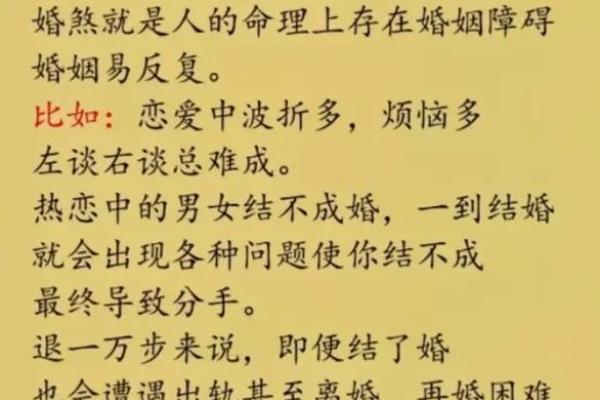 婚煞就是人的命理上存在婚姻障碍
婚姻易反复。
比如：恋爱中波折多，烦恼多
左谈右谈总难成。
热恋中的男女结不成婚，一到结婚
就会出现各种问题使你结不成
最终导致分手。
退一万步来说，即便结了婚
也会遭遇出轨甚至离婚，再婚困难